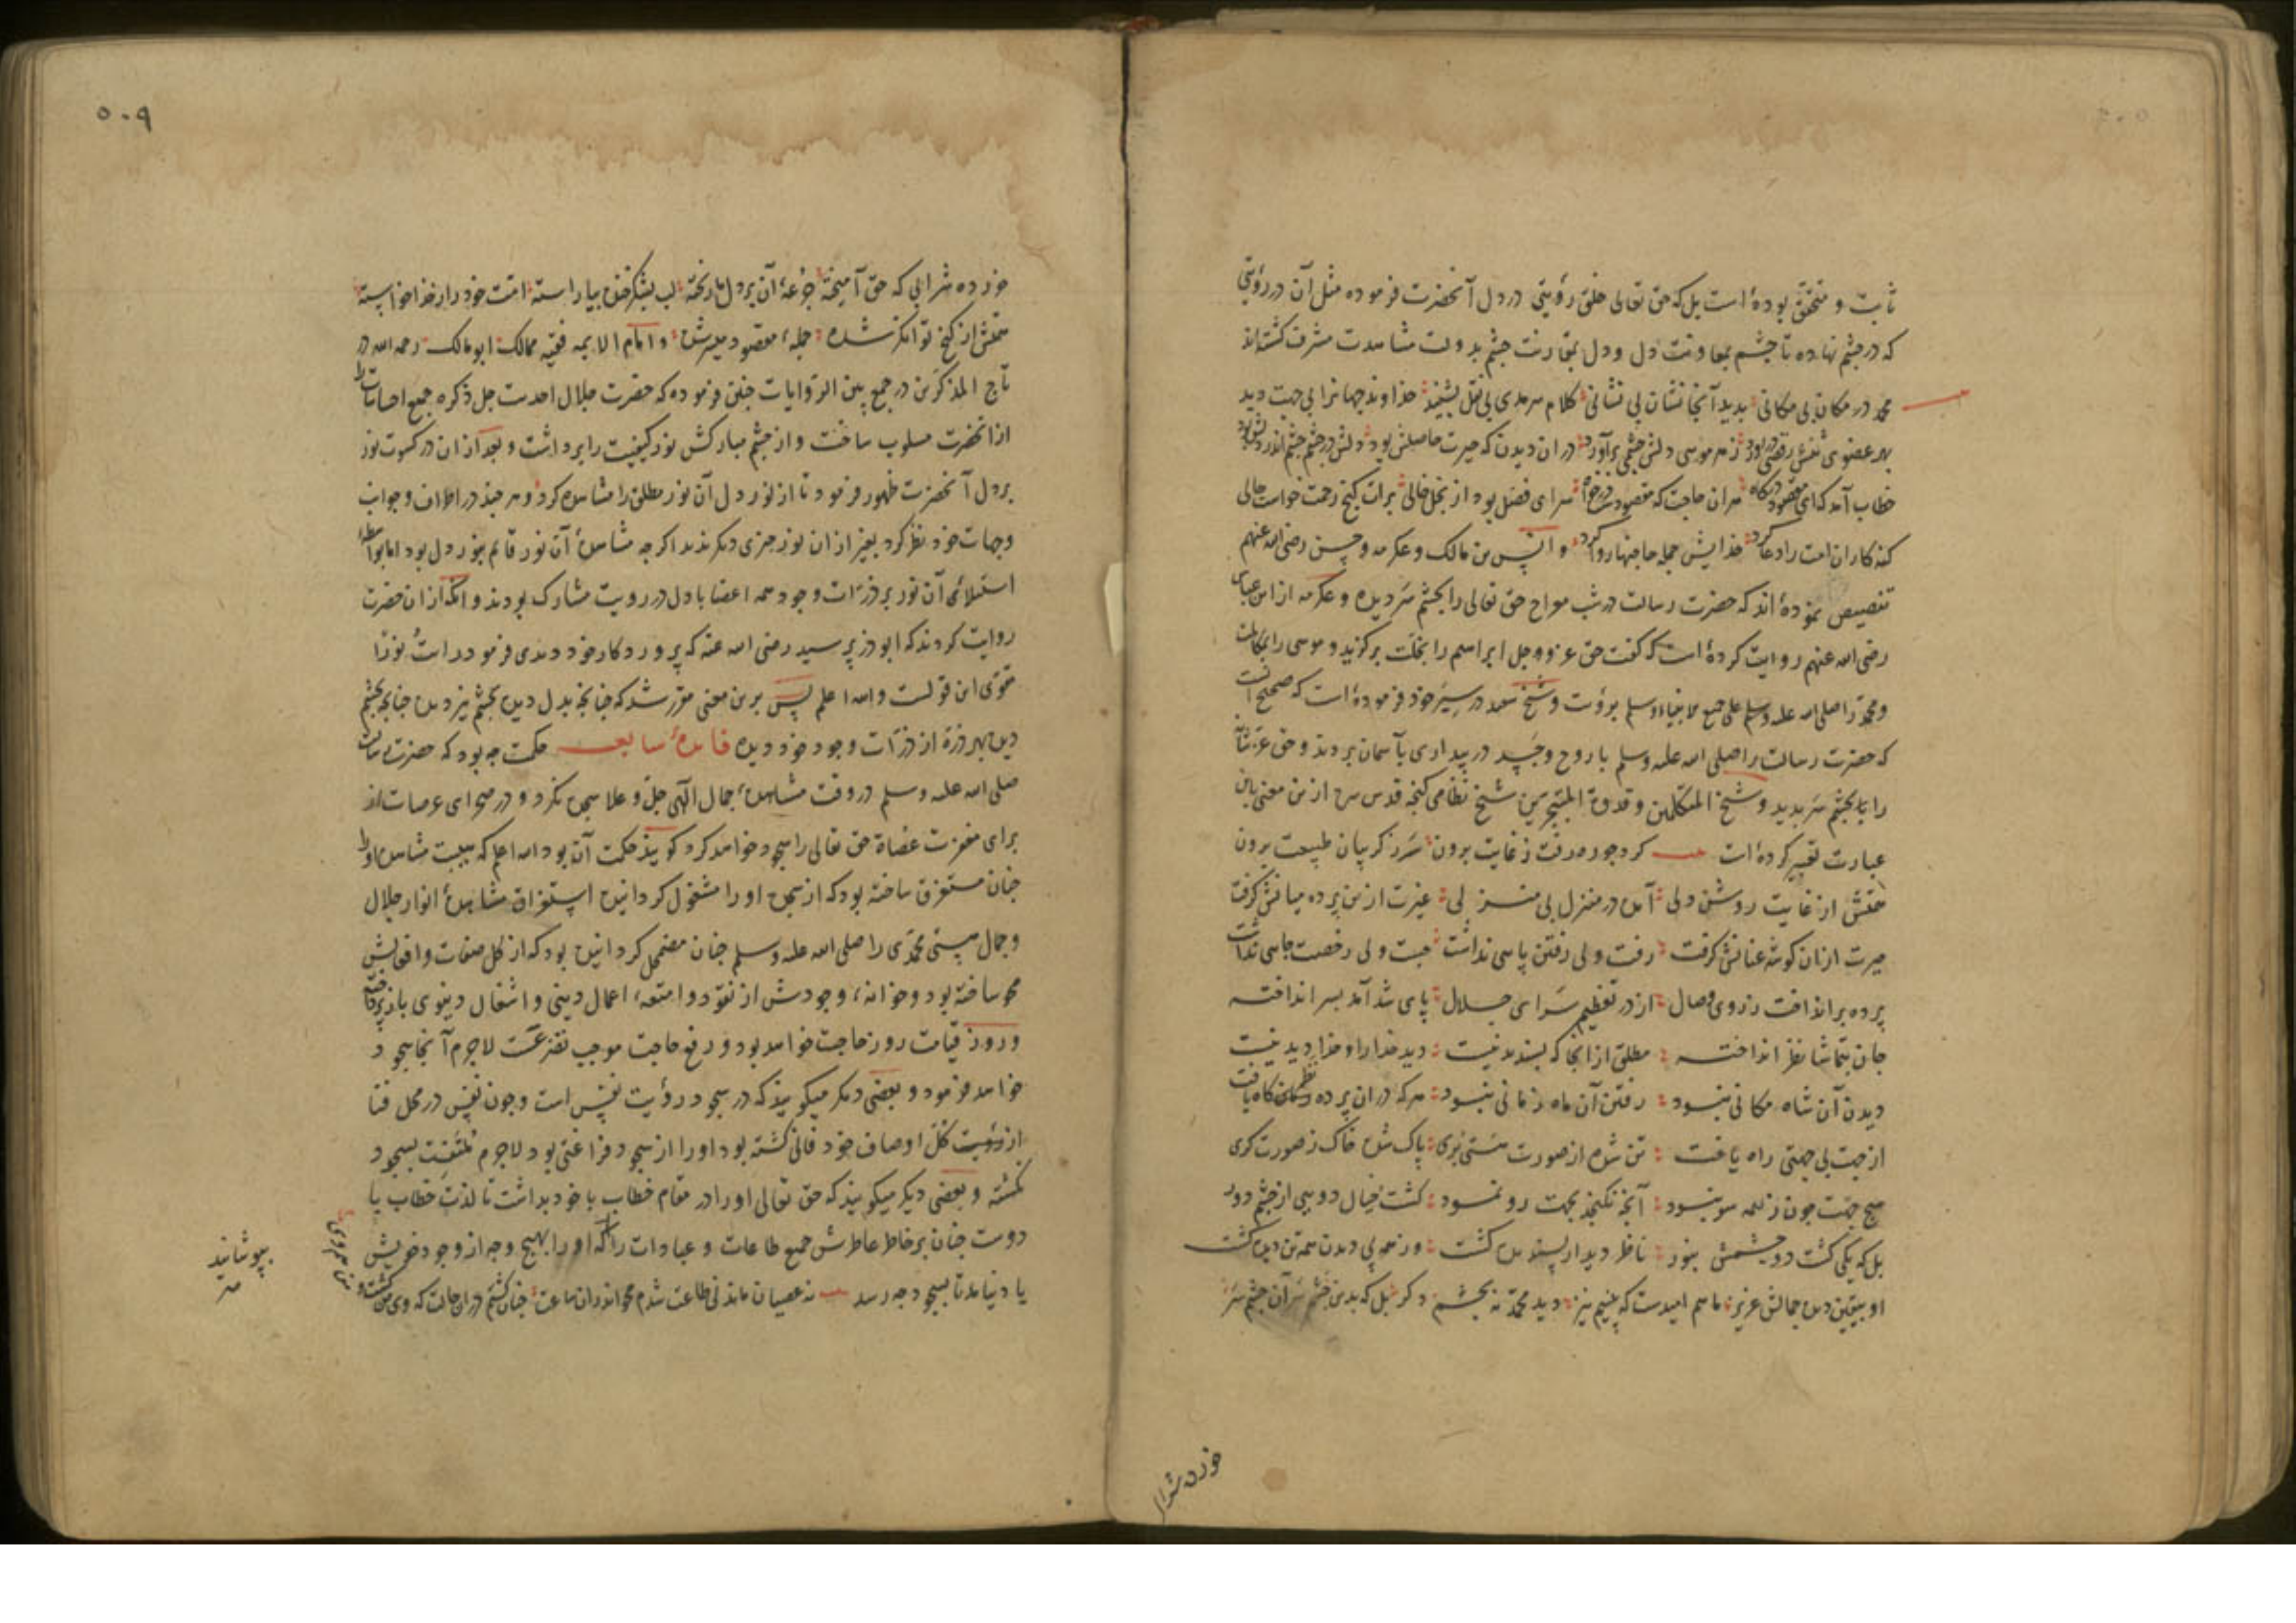 ثابت و متحقق بوده است بل که حق تعالی خلق رؤیتی در دل آنحضرت فرموده مثل آن در رؤیتی
که در چشم نهاده تا چشم بمعاونت دل و دل بمقارنت چشم بدولت مشاهدت مشرف کشته اند
محمد در مکان بی مکانی بدید آنجا نشان بی نشانی کلام سرمدی بی نقل بشنید خداوند جهانرا بی جهت دید
بهر عضوی تنش رقصی در آورد ز هر موسی دلش چشمی برآورد در ان دیدن که حیرت حاصلش بود دلش در چشم چشم اندر دلش بود
خطاب آمد که ای مقصود درکاه هر ان حاجت که مقصودست درخواه سرای فضل بود از بخل خالی برات کنج رحمت خواست حالی
کنه کاران امت را دعا کرد خدایش جمله حاجتها روا کرد و انس بن مالک و عکرمه و حسن رضی الله عنهم
تنصیص نموده اند که حضرت رسالت در شب معراج حق تعالی را بچشم سر دیده و عکرمه از ابن عباس
رضی الله عنهم روایت کرده است که کفت حق عز و جل ابراهیم را بخلت برکزید و موسی را بمکالمت
و محمد را صلی الله علیه و سلم علی جمیع الانبیاء و سلم برؤیت و شیخ سعد در سیر خود فرموده است که صحیح آنست
که حضرت رسالت را صلی الله علیه و سلم با روح و جسد در بیداری بآسمان بردند و حق عز شانه
را بچشم سر بدید و شیخ المتکلمین و قدوة المتبحرین شیخ نظامی کنجه قدس سره ازین معنی باین
عبارت تعبیر کرده است کرد چو ره رفت ز غایت برون سر ز کریبان طبیعت برون
همتش از غایت روشن دلی آمده در منزل بی منزلی غیرت ازین پرده میانش کرفت
حیرت ازان کوشه عنانش کرفت رفت ولی رفتن پاسی نداشت جست ولی رخصت جاسی نداشت
پرده برانداخت ز روی وصال از در تعظیم سرای جلال پای شد آمد بسر انداخته
جان بتماشا نظر انداخته مطلق ازانجا که پسندیدنیست دید خدا را و خدا دیدنیست
دیدن آن شاه مکانی نبود رفتن آن ماه زمانی نبود هر که در ان پرده نظرکاه یافت
از جهت بی جهتی راه یافت تن شده از صورت هستی بری پاک شده خاک ز صورت کری
هیچ جهت چون ز همه سو نبود آنچه نکنجد بجهت رو نمود کشت خیال دو بی از چشم دور
بل که یکی کشت دو چشمش بنور ناظر دیدار پسندیده کشت ور همه پی دیدن همه تن دیده کشت
او بیقین دیده جمالش عزیز ما هم امیدست که بینیم نیز دید محمد نه بچشم دکر بل که بدین چشم سر آن چشم سر
خورده شرا
۵۰۹
خورده شرابی که حق آمیخته جرعهٔ آن بر دل ما ریخته لب بشکر خنده بیاراسته امت خود را ز خدا خواسته
همتش از کنج توانکر شده جملهٔ مقصود میسر شده و امام الایمه فقیه ممالک ابو مالک رحمه الله در
تاج المذکرین در جمع بین الروایات چنین فرموده که حضرت جلال احدیت جل ذکره جمیع احساسات را
از انحضرت مسلوب ساخت و از چشم مبارکش نور کیفیت را برداشت و بعد ازان در کسوت نور
بر دل آنحضرت ظهور فرمود تا از نور دل آن نور مطلق را مشاهده کرد و هر چند در اطراف و جوانب
و جهات خود نظر کرد بغیر از ان نور چیزی دیکر ندید اکرچه مشاهدهٔ آن نور قایم بنور دل بود اما بواسطهٔ
استیلای آن نور بر ذرات وجود همه اعضا با دل در رویت مشارک بودند و آنکه از ان حضرت
روایت کردند که ابوذر پرسید رضی الله عنه که پروردکار خود دیدی فرمود رایت نورا
مقوی این قولست و الله اعلم پس برین معنی مقرر شد که چنانچه بدل دیده بچشم نیز دیده چنانچه بچشم
دیده بهر ذره از ذرات وجود خود دیده فایدهٔ سابعه حکمت چه بود که حضرت رسالت
صلی الله علیه و سلم در وقت مشاهدهٔ جمال الهی جل و علا سجده نکرد و در صحرای عرصات از
برای مغفرت عصاة حق تعالی را سجود خواهد کرد کویند حکمت آن بود الله اعلم که هیبت مشاهده او را
چنان مستغرق ساخته بود که از سجده او را مشغول کردانیده استغراق مشاهدهٔ انوار جلال
و جمال هستی محمدی را صلی الله علیه و سلم چنان مضمحل کردانیده بود که از کل صفات و افعالش
محو ساخته بود و خزانهٔ وجودش از نقود و امتعهٔ اعمال دینی و اشغال دنیوی باز پرداخته
و روز قیامت روز حاجت خواهد بود و رفع حاجت موجب تضرعست لاجرم آنجا سجود
خواهد فرمود و بعضی دیکر میکویند که در سجود رؤیت نفس است و چون نفس در محل فنا
از رؤیت کل اوصاف خود فانی کشته بود او را از سجود فراغتی بود لاجرم ملتفت بسجود
نکشته و بعضی دیکر میکویند که حق تعالی او را در مقام خطاب با خود بداشت تا لذت خطاب با
دوست چنان بر خاطر عاطرش جمیع طاعات و عبادات را که او را بهیچ وجه از وجود خویش
یا دنیامد تا بسجود چه رسد نه عصیان ماند نی طاعت شدم محو اندران ساعت چنان کشتم دران حالت که وی من کشت و
بپوشانید